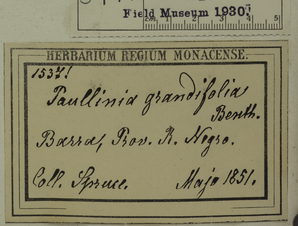 Field Museum 1930.
HERBARIUM REGIUM MONACENSE.
1534!
Paullinia grandifolia
Benth.
Barra, Prov. R. Negro.
Coll. Spruce. Majo 1851.